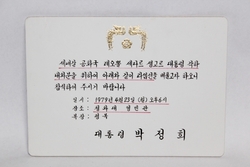 세네갈 공화국 레오뽈 세다르 셍고르 대통령 각하
내외분을 위하여 아래와 같이 리셉션을 베풀고자 하오니
참석하여 주시기 바랍니다
일시 : 1979년 4월 23일 (월) 오후 6시
장소 : 청와대 영빈관
복장 : 평복
대통령 박정희